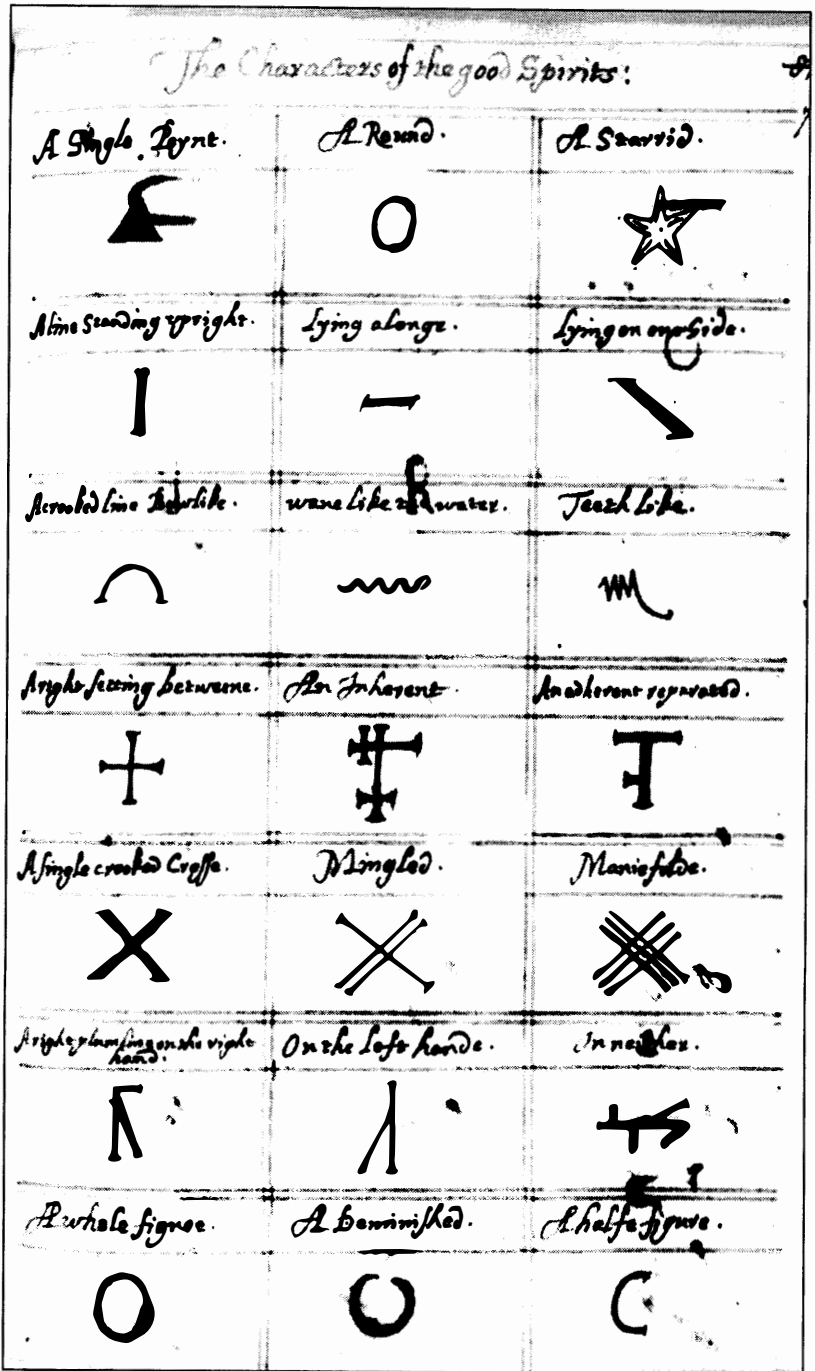 The Characters of the good Spirits:
A Single Poynt. A Round. A Starrid.
A line Standing upright. Lying alonge. Lying on one Side.
A crooked line Bowlike. wave like water. Teeth like.
A right setting betweene. An Inherent. An adherent separated.
A single crooked Crosse. Mingled. Maniefolde.
A right on the right On the left hande. In neither.
hand.
A whole figure. A Deminished. A halfe figure.